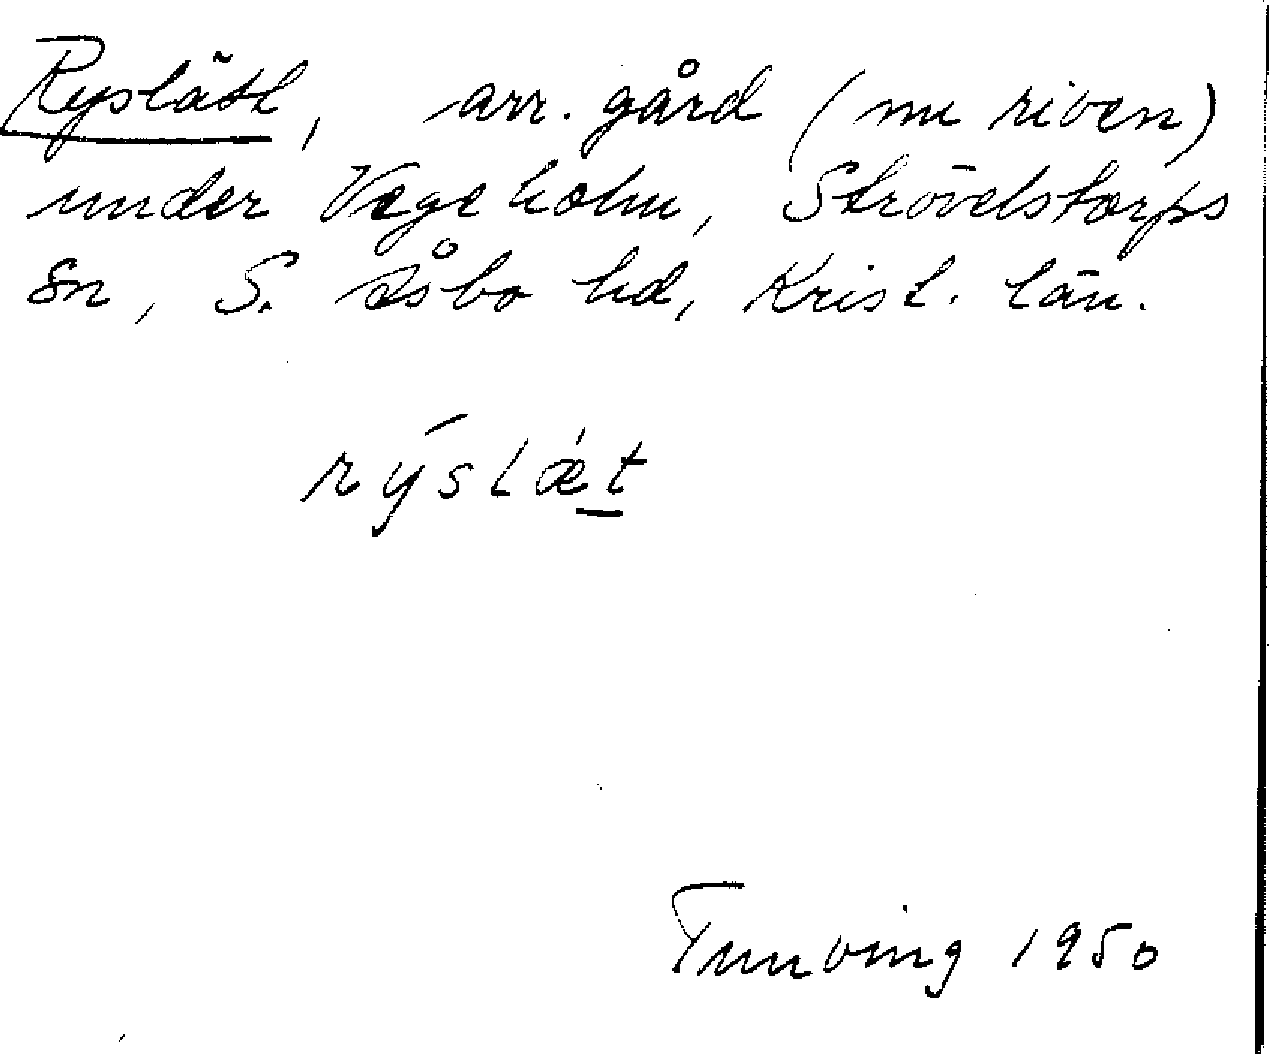 Ryslätt, arr. gård (nu riven)
under Vegeholm, Strövelstorps
sn, S. Åsbo hd, Krist. län.
rýslǽt
Tunving 1950